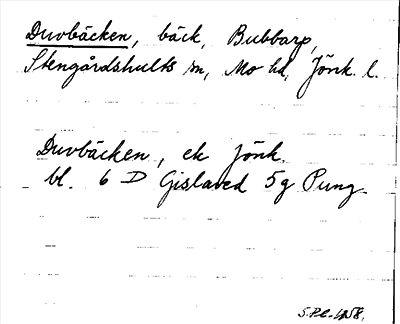 Duvbäcken, bäck, Bubbarp,
Stengårdshults sn, Mo hd, Jönk. l.
Duvbäcken, ek Jönk.
bl. 6 D Gislaved 5g Pung.